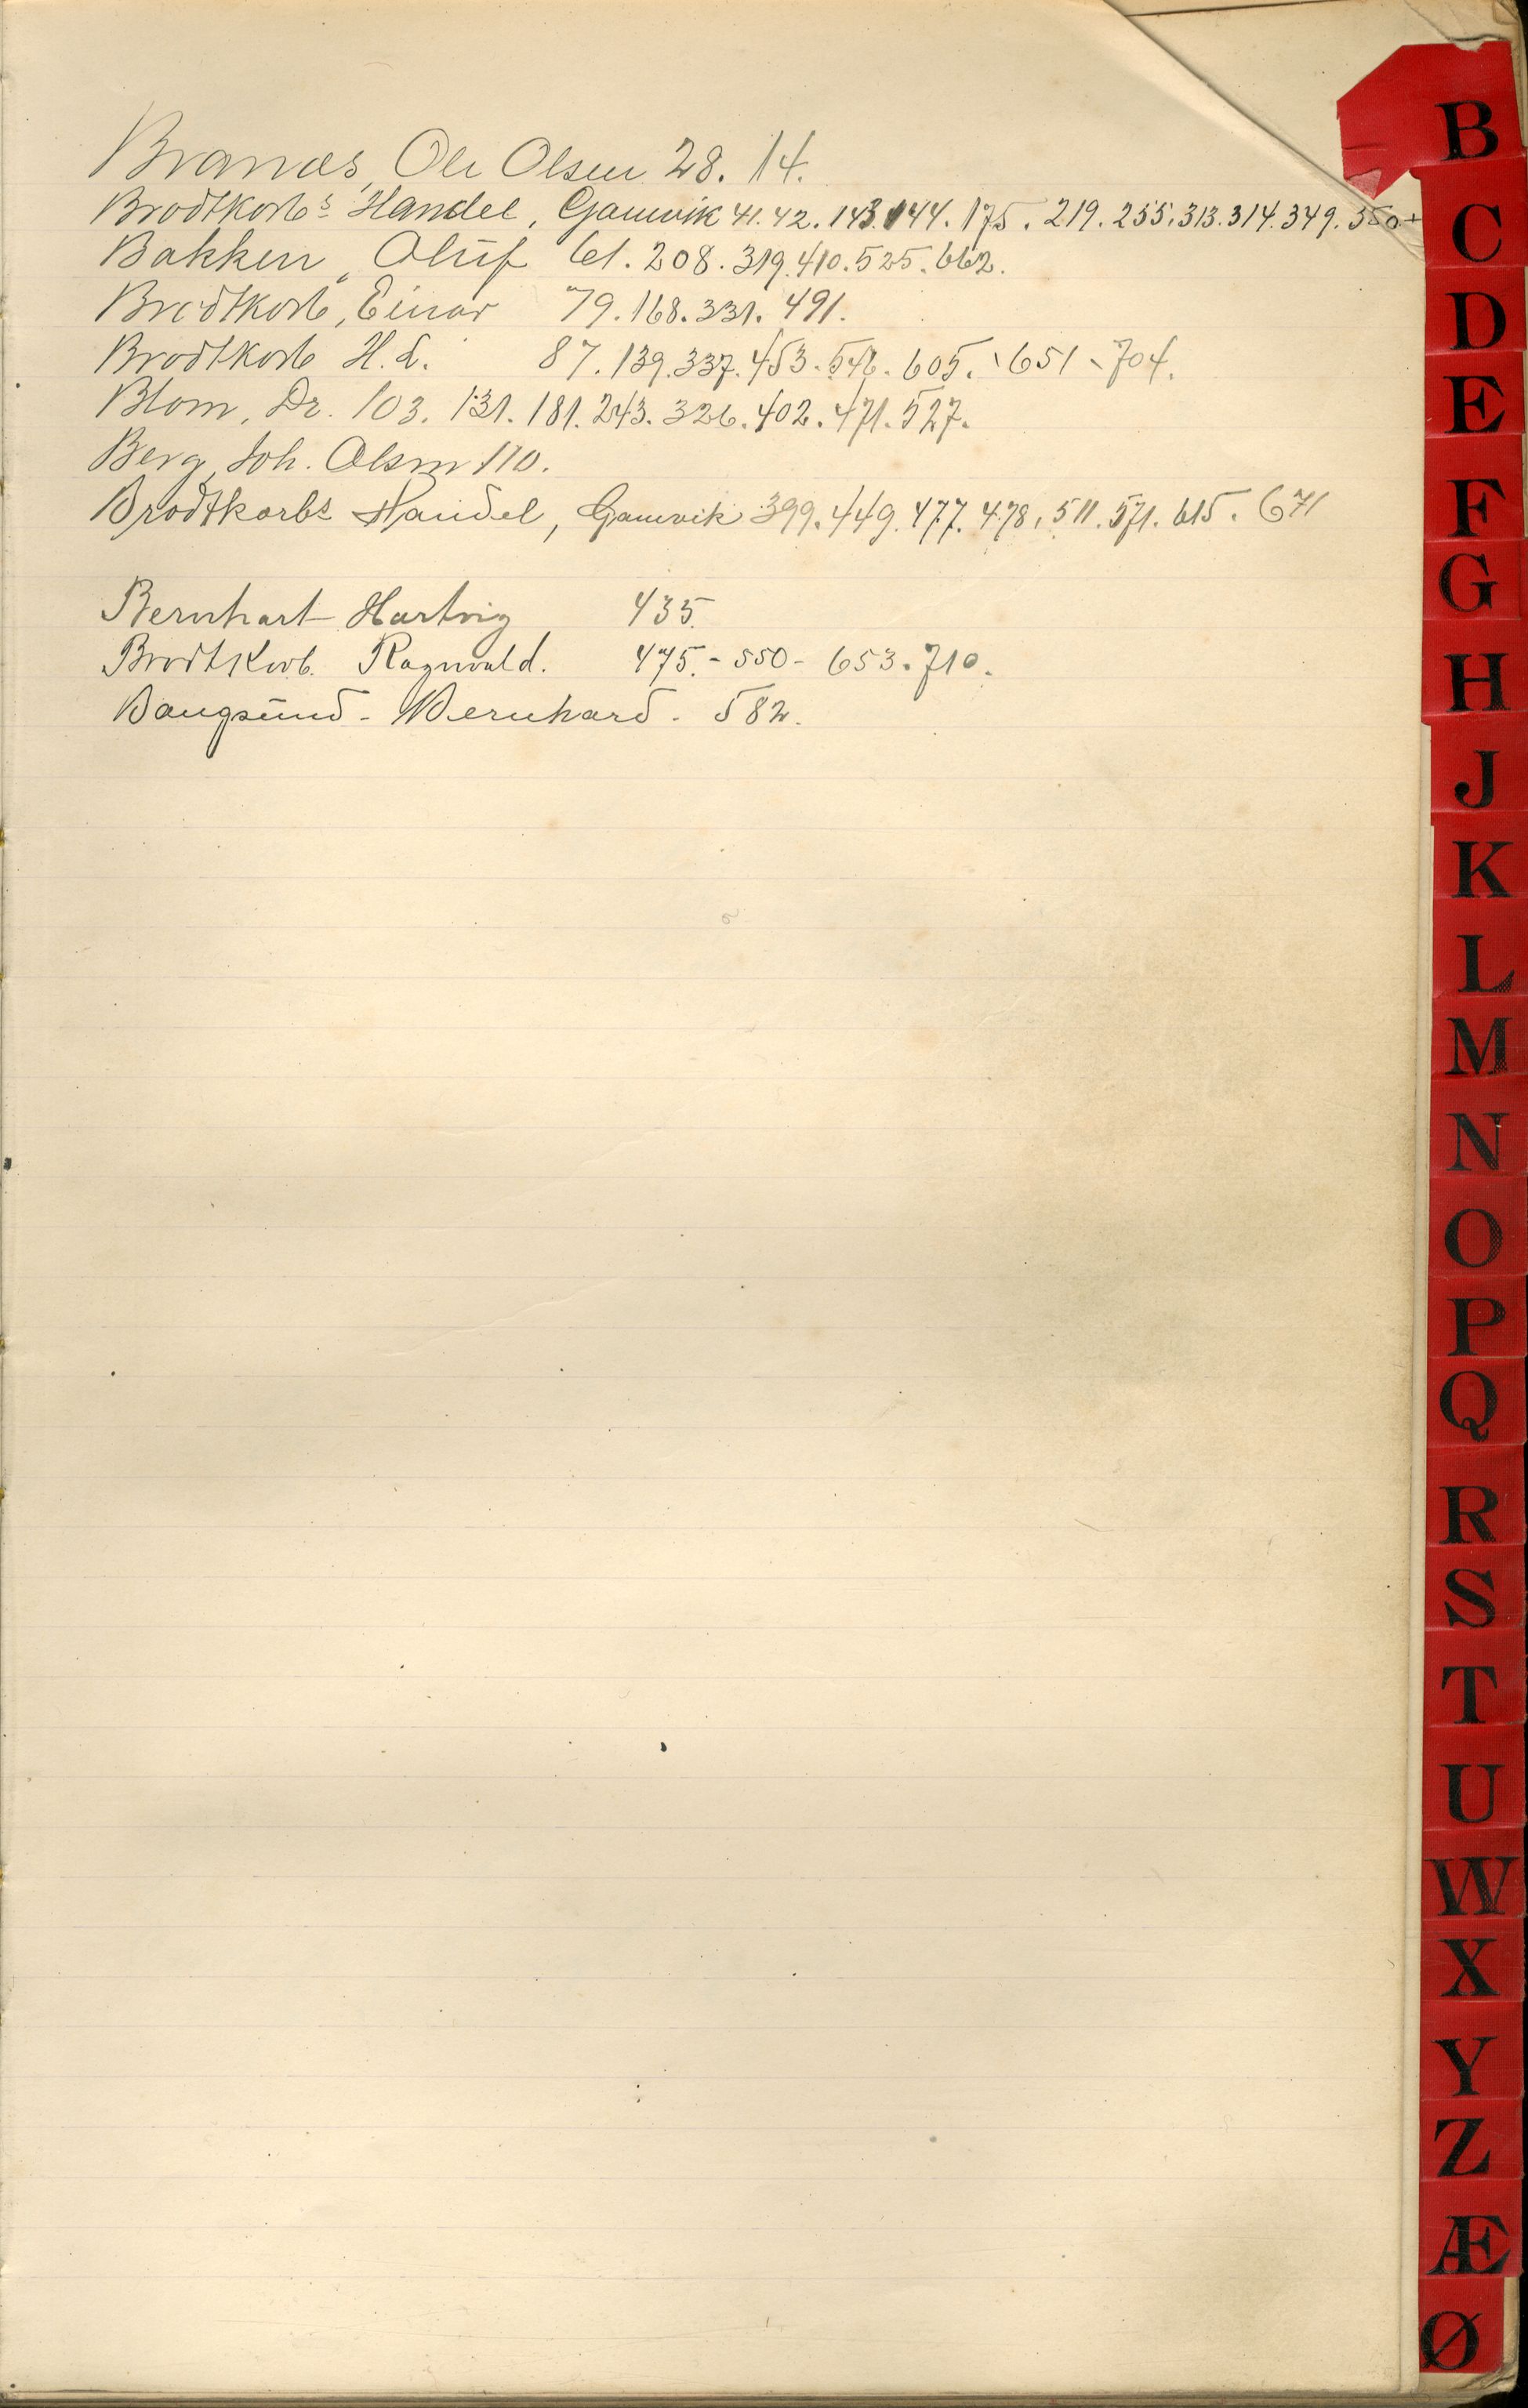 Branæs, Ole Olsen 28. 14.
Brodtkorbs Handel, Gamvik 41. 42. 143. 144. 175. 219. 255. 313. 314. 349. 350+
Bakken, Oluf 61. 208. 319. 410. 525. 662.
Brodtkorb, Einar 79. 168. 331. 491.
Brodtkorb H. L. 87. 139. 337. 453. 546. 605. 651 - 704.
Blom, Dr. 103. 131. 181. 243. 326. 402. 471. 527.
Berg, Joh. Olsen 110.
Brodtkorbs Handel, Gamvik 399. 449. 477. 478, 511. 571. 615. 671
Bernhart Hartvig 435.
Brodtkorb. Ragnvald. 475. - 550 - 653. 710.
Baugsund - Bernhard. 582.
B
C
D
E
F
G
H
J
K
L
M
N
O
P
Q
R
S
T
U
W
X
Y
Z
Æ
Ø